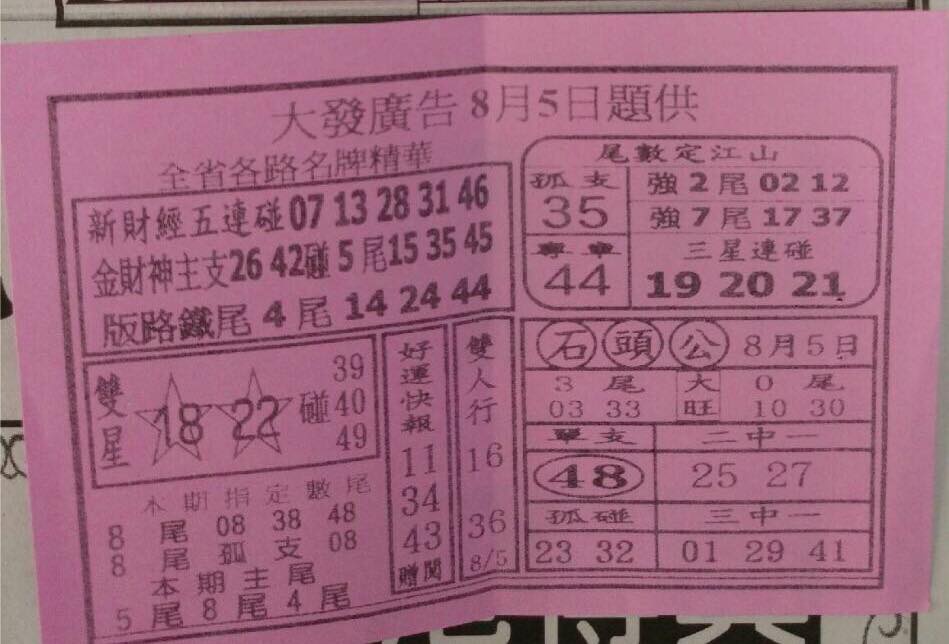 大發廣告8月5日題供
全省各路名牌精華
新財經五連碰07 13 28 31 46
金財神主支26 42碰5尾15 35 45
版路鐵尾4尾14 24 44
尾數定江山
孤支
35
強2尾02 12
強7尾17 37
專車
44
三星連碰
19 20 21
雙星
18 22
碰
39
40
49
本期指定數尾
8尾08 38 48
8尾孤支08
本期主尾
5尾8尾4尾
好運快報
11
34
43
贈閱
雙人行
16
36
8/5
石頭公8月5日
3尾
03 33
大旺
0尾
10 30
單支
48
二中一
25 27
孤碰
23 32
三中一
01 29 41